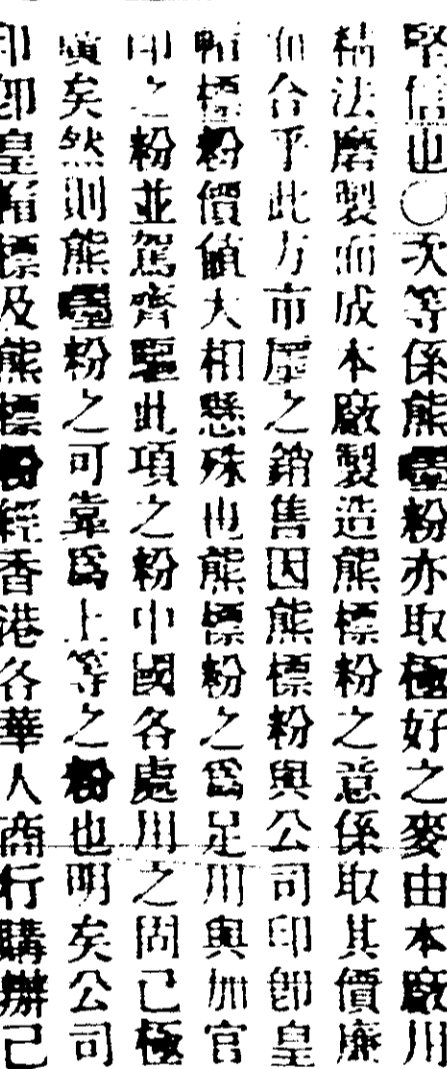 啓信也〇次等係熊嘜粉亦取極好之麥由本廠用
精法磨製而成本廠製造熊標粉之意係取其價廉
而合乎此方市屋之銷售因熊標粉與公司印卽皇
帽標粉價値大相懸殊也熊標粉之爲足用與加官
印之粉並駕齊驅此項之粉中國各處用之固已極
廣矣然則熊嘜粉之可靠爲上等之粉也明矣公司
印卽皇帽標及熊標粉經香港各華人商行購辦已